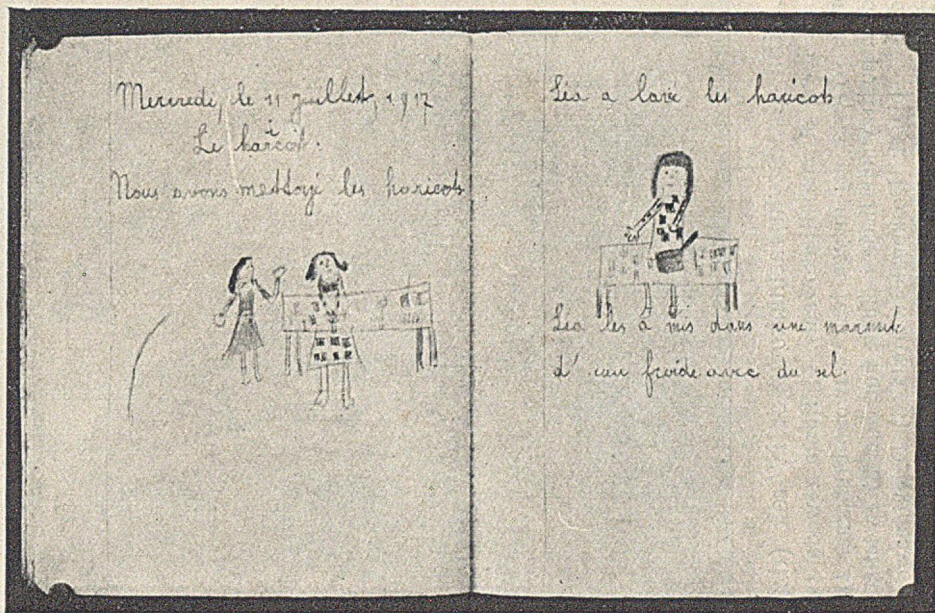 Mercredi, le 11 juillet, 1917
Le haricot.
Nous avons nettoyé les haricots
Léa a lavé les haricots
Léa les a mis dans une marmite
d'eau froide avec du sel.